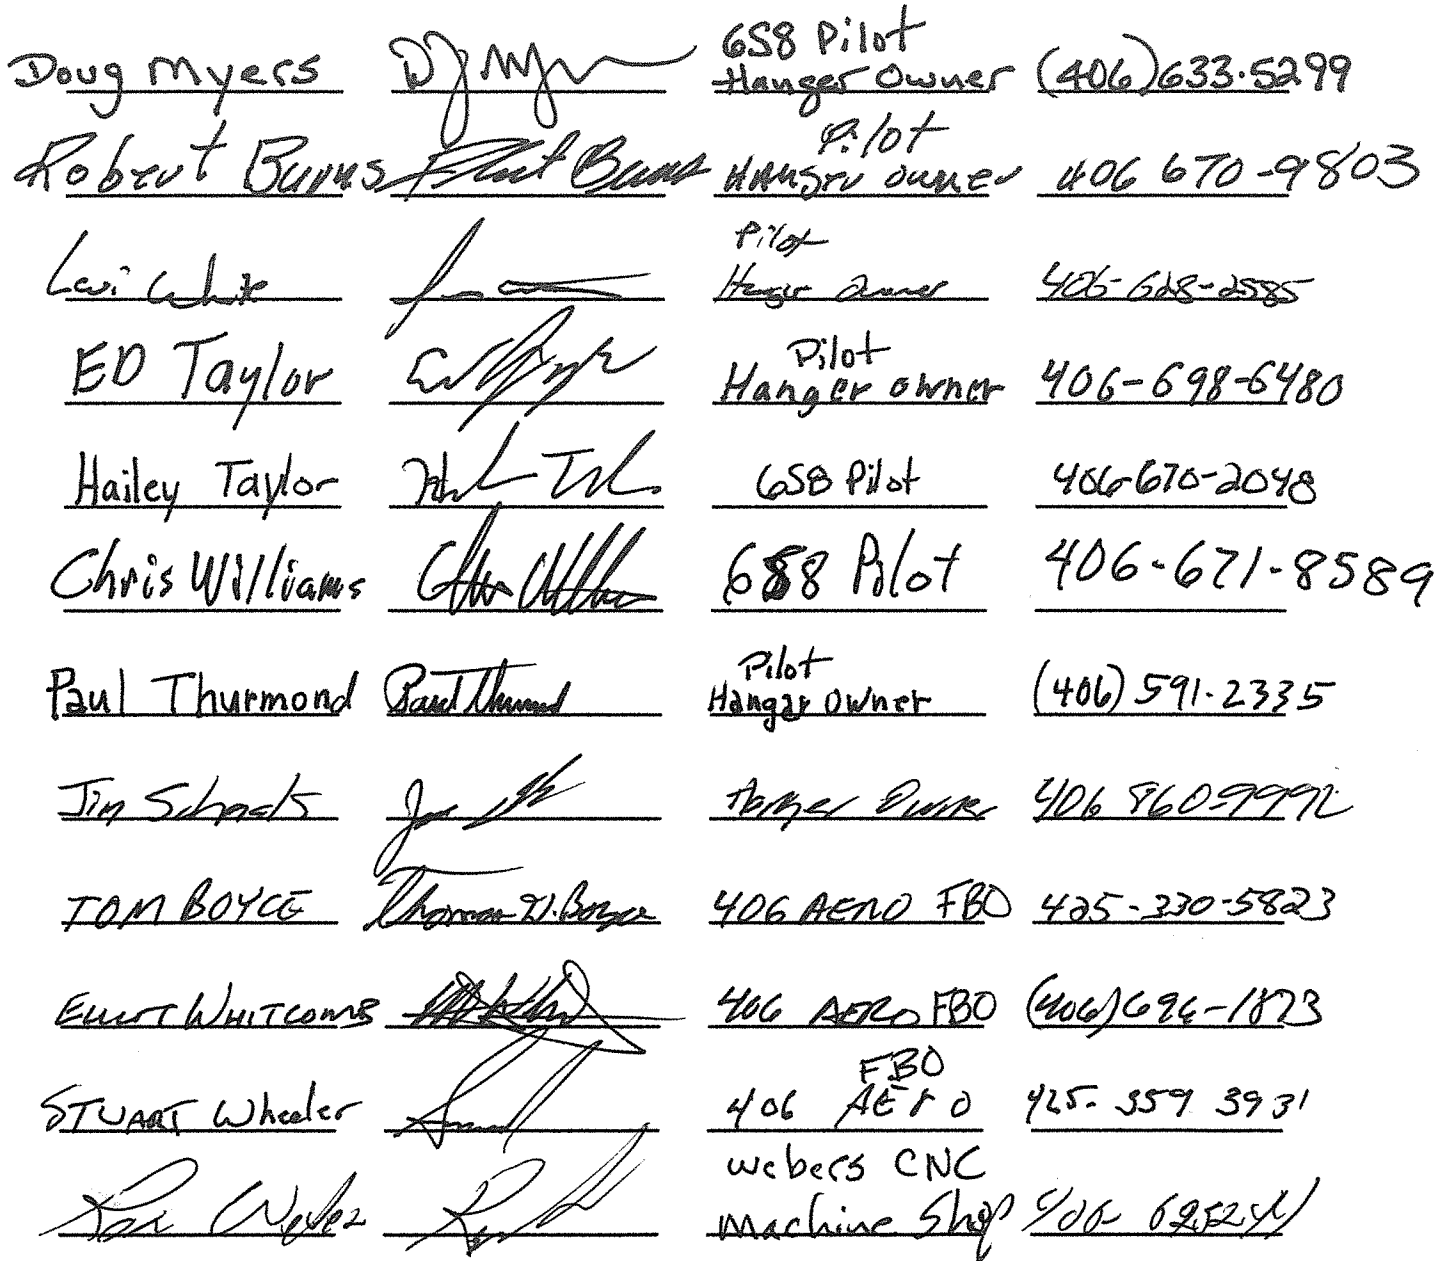 658 Pilot
Doug Myers DJ Myers Hanger Owner (406) 633-5299
Pilot
Robert Burns Robert Burns Hanger owner 406 670-9803
Pilot
Levi White Hanger Owner 406-628-2585
Pilot
ED Taylor Hanger owner 406-698-6480
Hailey Taylor 658 Pilot 406-670-2048
Chris Williams Chris Williams 658 Pilot 406-671-8589
Pilot
Paul Thurmond Paul Thurmond Hangar Owner (406) 591-2335
Jim Hanger Owner 406 860-9992
TOM BOYCE Thomas D. Boyce 406 AERO FBO 425-330-5823
ELLIOT WHITCOMB 406 AERO FBO (406) 696-1873
FBO
STUART Wheeler 406 AERO 425-359 3931
Webers CNC
Weber Machine Shop 406